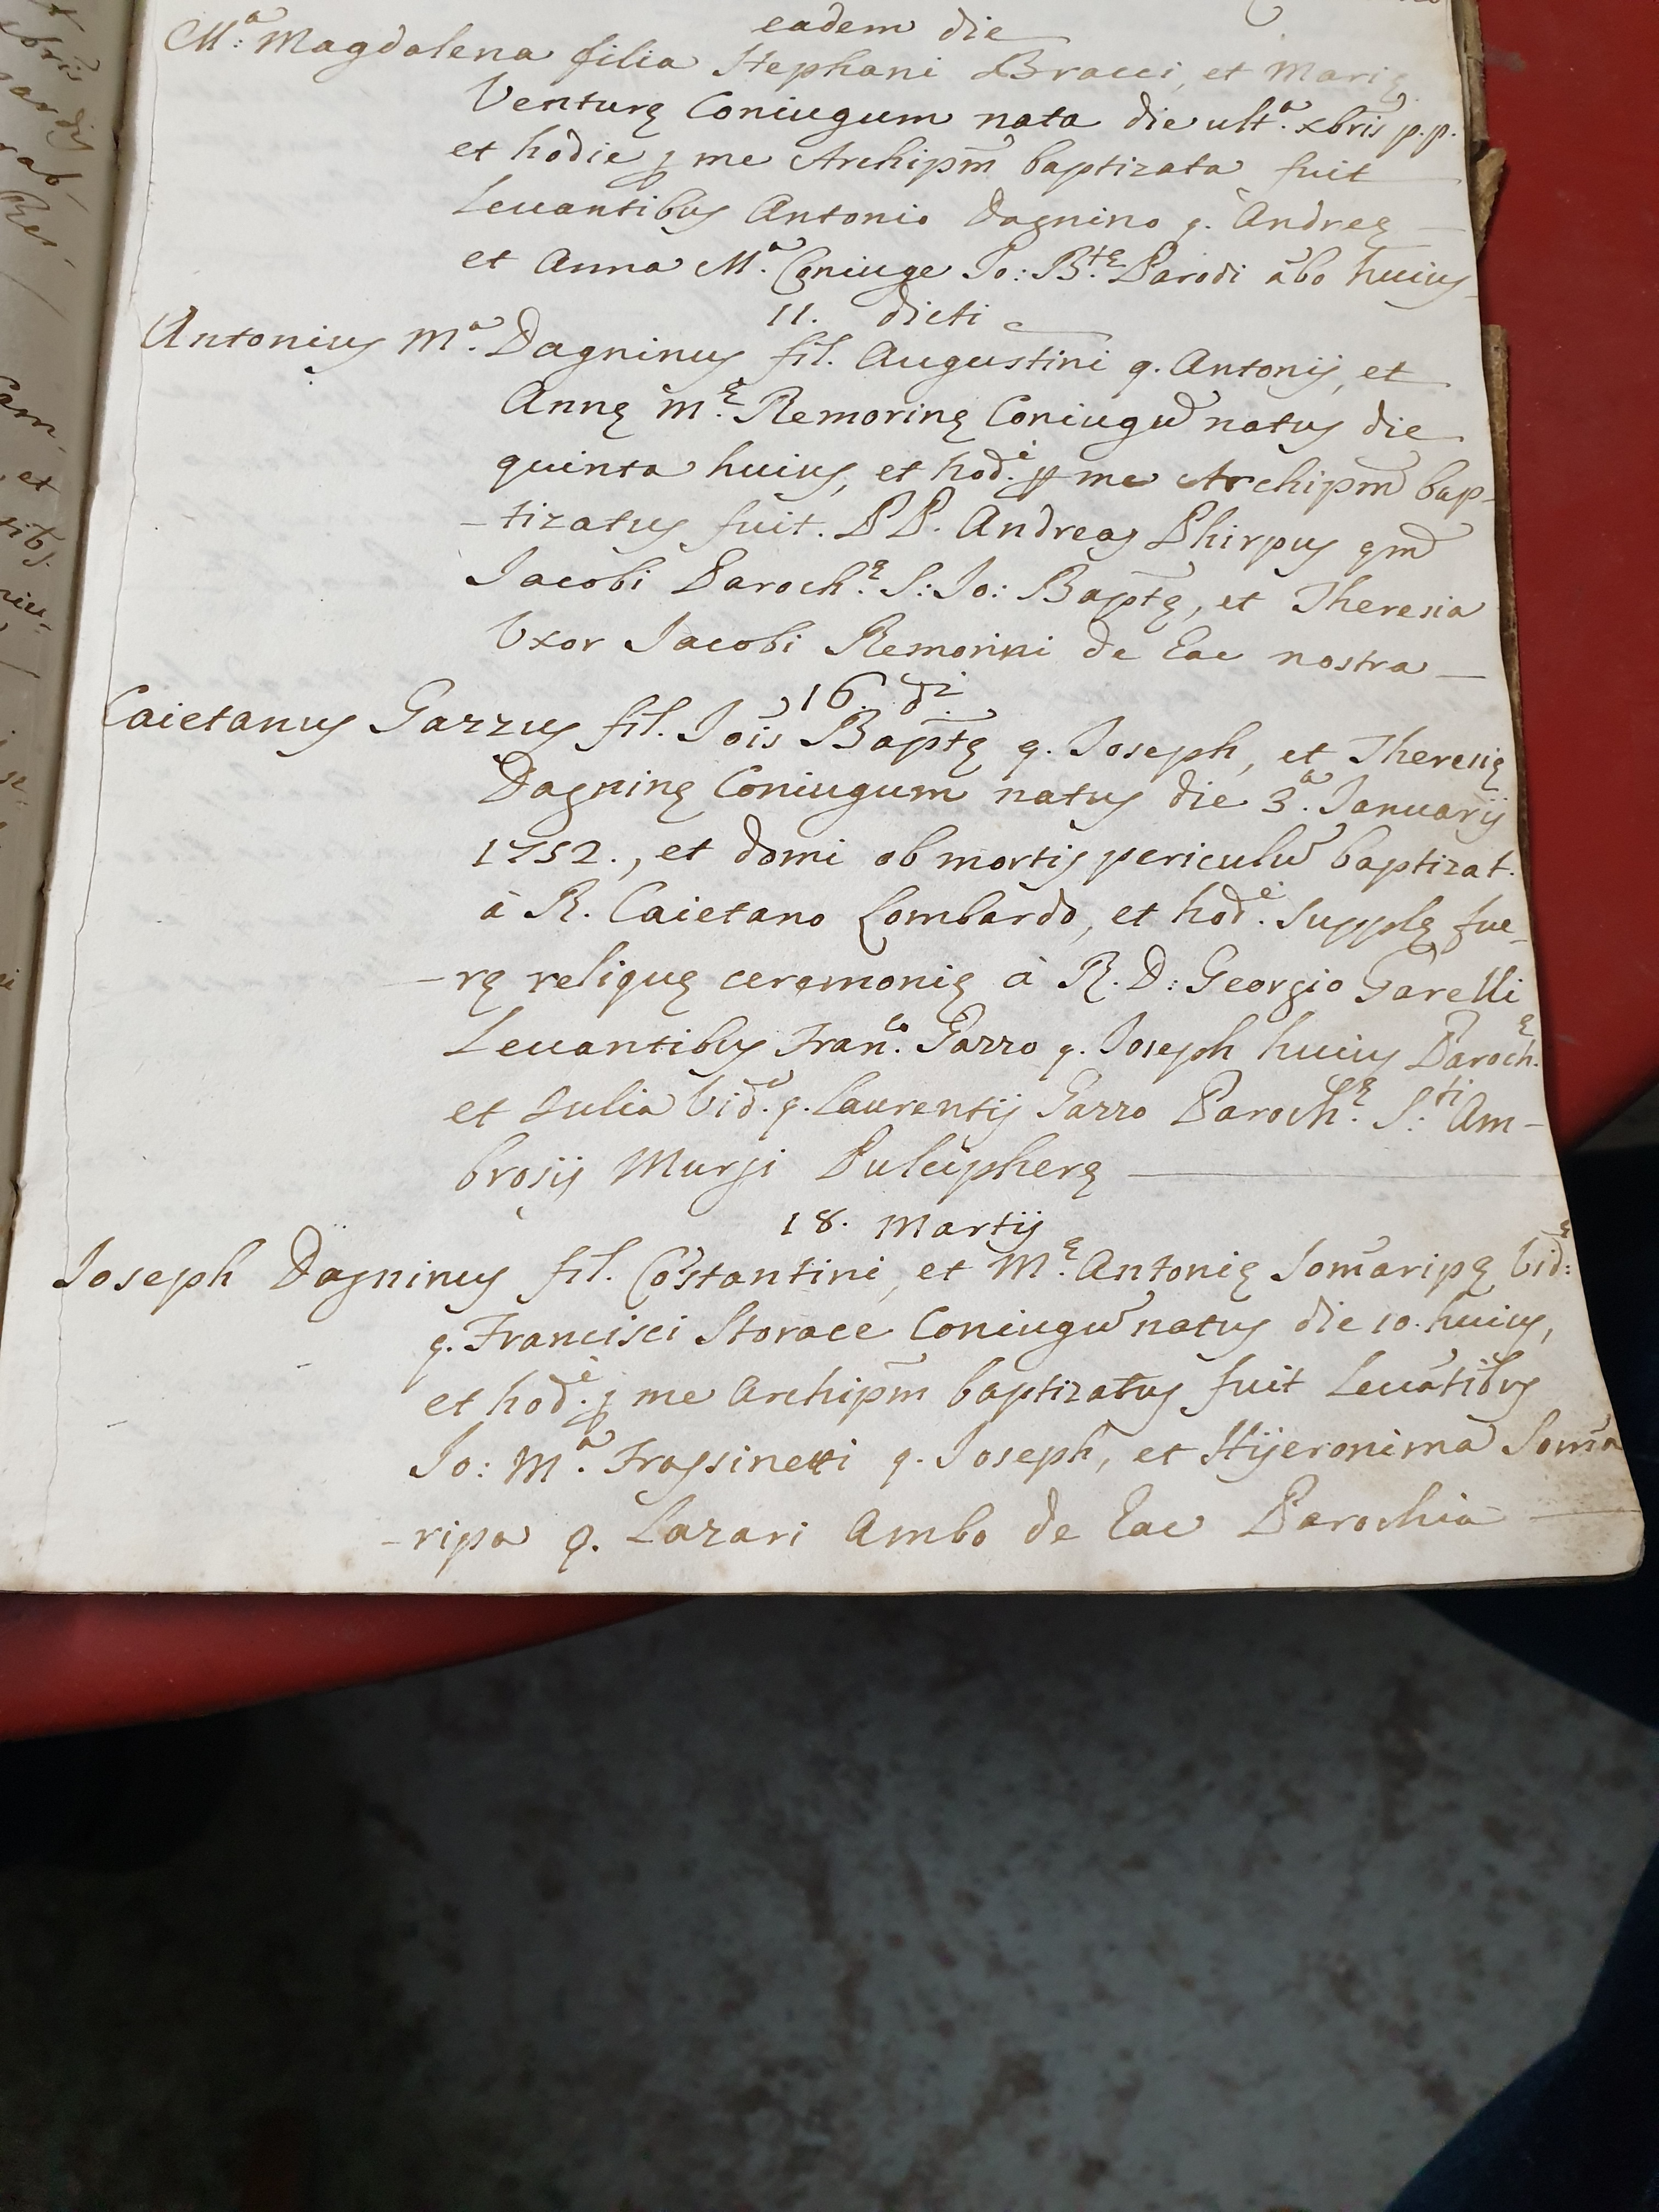 eadem die
M:ª Magdalena filia Stephani Bracci, et Marię
Venturę Coniugum nata die ult.ª xbris p.p.
et hodie p me Archipm̃ baptizata fuit
Leuantibus Antonio Dagnino q. Andreę
et Anna M.ª Coniuge Jo: B.tę Parodi ãbo huius
11. dicti
Antonius M.ª Dagninus fil. Augustini q. Antonij, et
Annę M.ę Remorinę Coniugũ natus die
quinta huius, et hod.è p me Archipm̃ bap-
-tizatus fuit. PP. Andreas Phirpus qm̃
Jacobi Paroch.ę S: Jo: Baptę, et Theresia
Uxor Jacobi Remorini de Eac nostra
16. di
Caietanus Gazzus fil. Jois Baptę q. Joseph, et Theresię
Dagninę Coniugum natus die 3.ª Januarij
1752., et domi ob mortis periculũ baptizat.
à R. Caietano Lombardo, et hod.è Supplę fue-
-rę reliquę ceremonię à R. D: Georgio Garelli
Leuantibus Fran.co Gazzo q. Joseph huius Paroch.ę
et Julia Vid.ª q. Laurentij Gazzo Paroch.ę S.ti Am-
brosij Mursi Pulcipherę
18. Martij
Joseph Dagninus fil. Cõstantini, et M.ę Antonię Som̃aripę Vid:ę
q. Francisci Storace Coniugũ natus die 10. huius,
et hod.è p me Archipm̃ baptizatus fuit Leuãtibus
Jo: M.ª Frassinetti q. Joseph, et Hijeronima Som̃a
-ripa q. Lazari Ambo de Eac Parochia